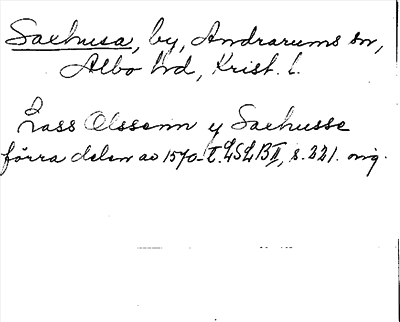 Saxhusa, by, Andrarums sn,
Albo hd, Krist. l.
Lass Olssenn y Saxhusse
förra delen av 1570-t. LSLB II, s. 221. orig.